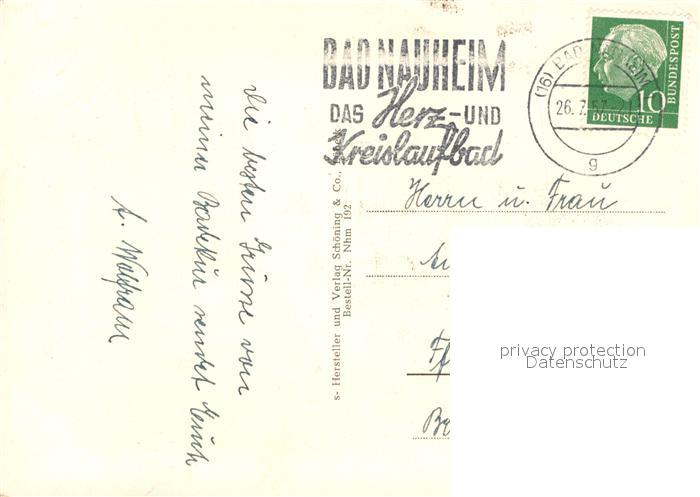 BAD NAUHEIM
DAS Herz-UND
Kreislaufbad
(16) BAD NAUHEIM
26. 7. 57
g
10
DEUTSCHE
BUNDESPOST
Herrn u. Frau
privacy protection
Datenschutz
s- Hersteller und Verlag Schöning & Co.,
Bestell-Nr. Nhm 192
Die besten Grüsse von
meiner Badekur sendet Euch